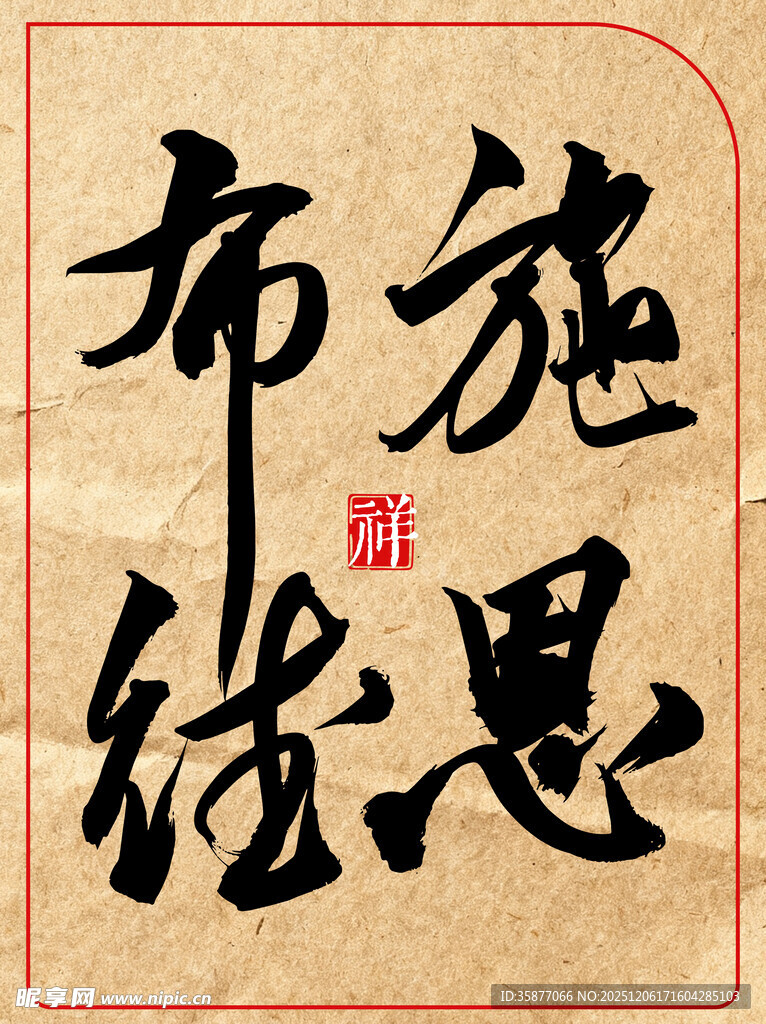 施恩
布德
祥
昵享网 www.nipic.cn
ID:35877066 NO:20251206171604285103